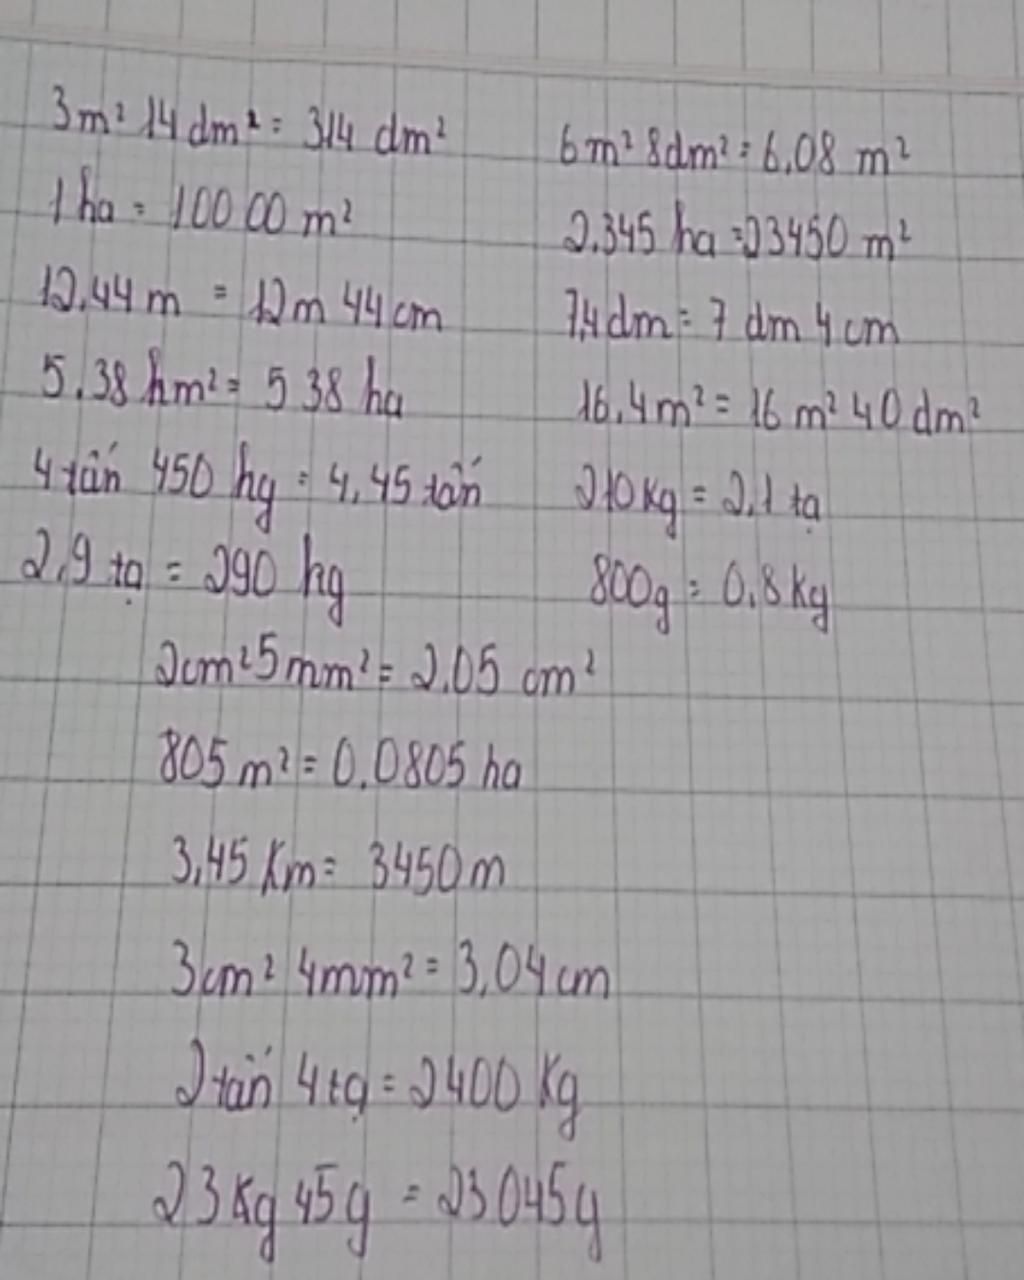 3m² 14 dm² = 314 dm²
6m² 8dm² = 6.08 m²
1 ha = 10000 m²
2.345 ha = 23450 m²
12.44 m = 12m 44 cm
7,4 dm = 7 dm 4 cm
5.38 hm² = 5 38 ha
16.4m² = 16 m² 40 dm²
4 tấn 450 kg = 4.45 tấn
210 kg = 2,1 tạ
2,9 tạ = 290 kg
800g = 0,8 kg
2cm² 5mm² = 2.05 cm²
805 m² = 0.0805 ha
3,45 Km = 3450m
3cm² 4mm² = 3,04 cm
2 tấn 4 tạ = 2400 Kg
23 Kg 45g = 23045g